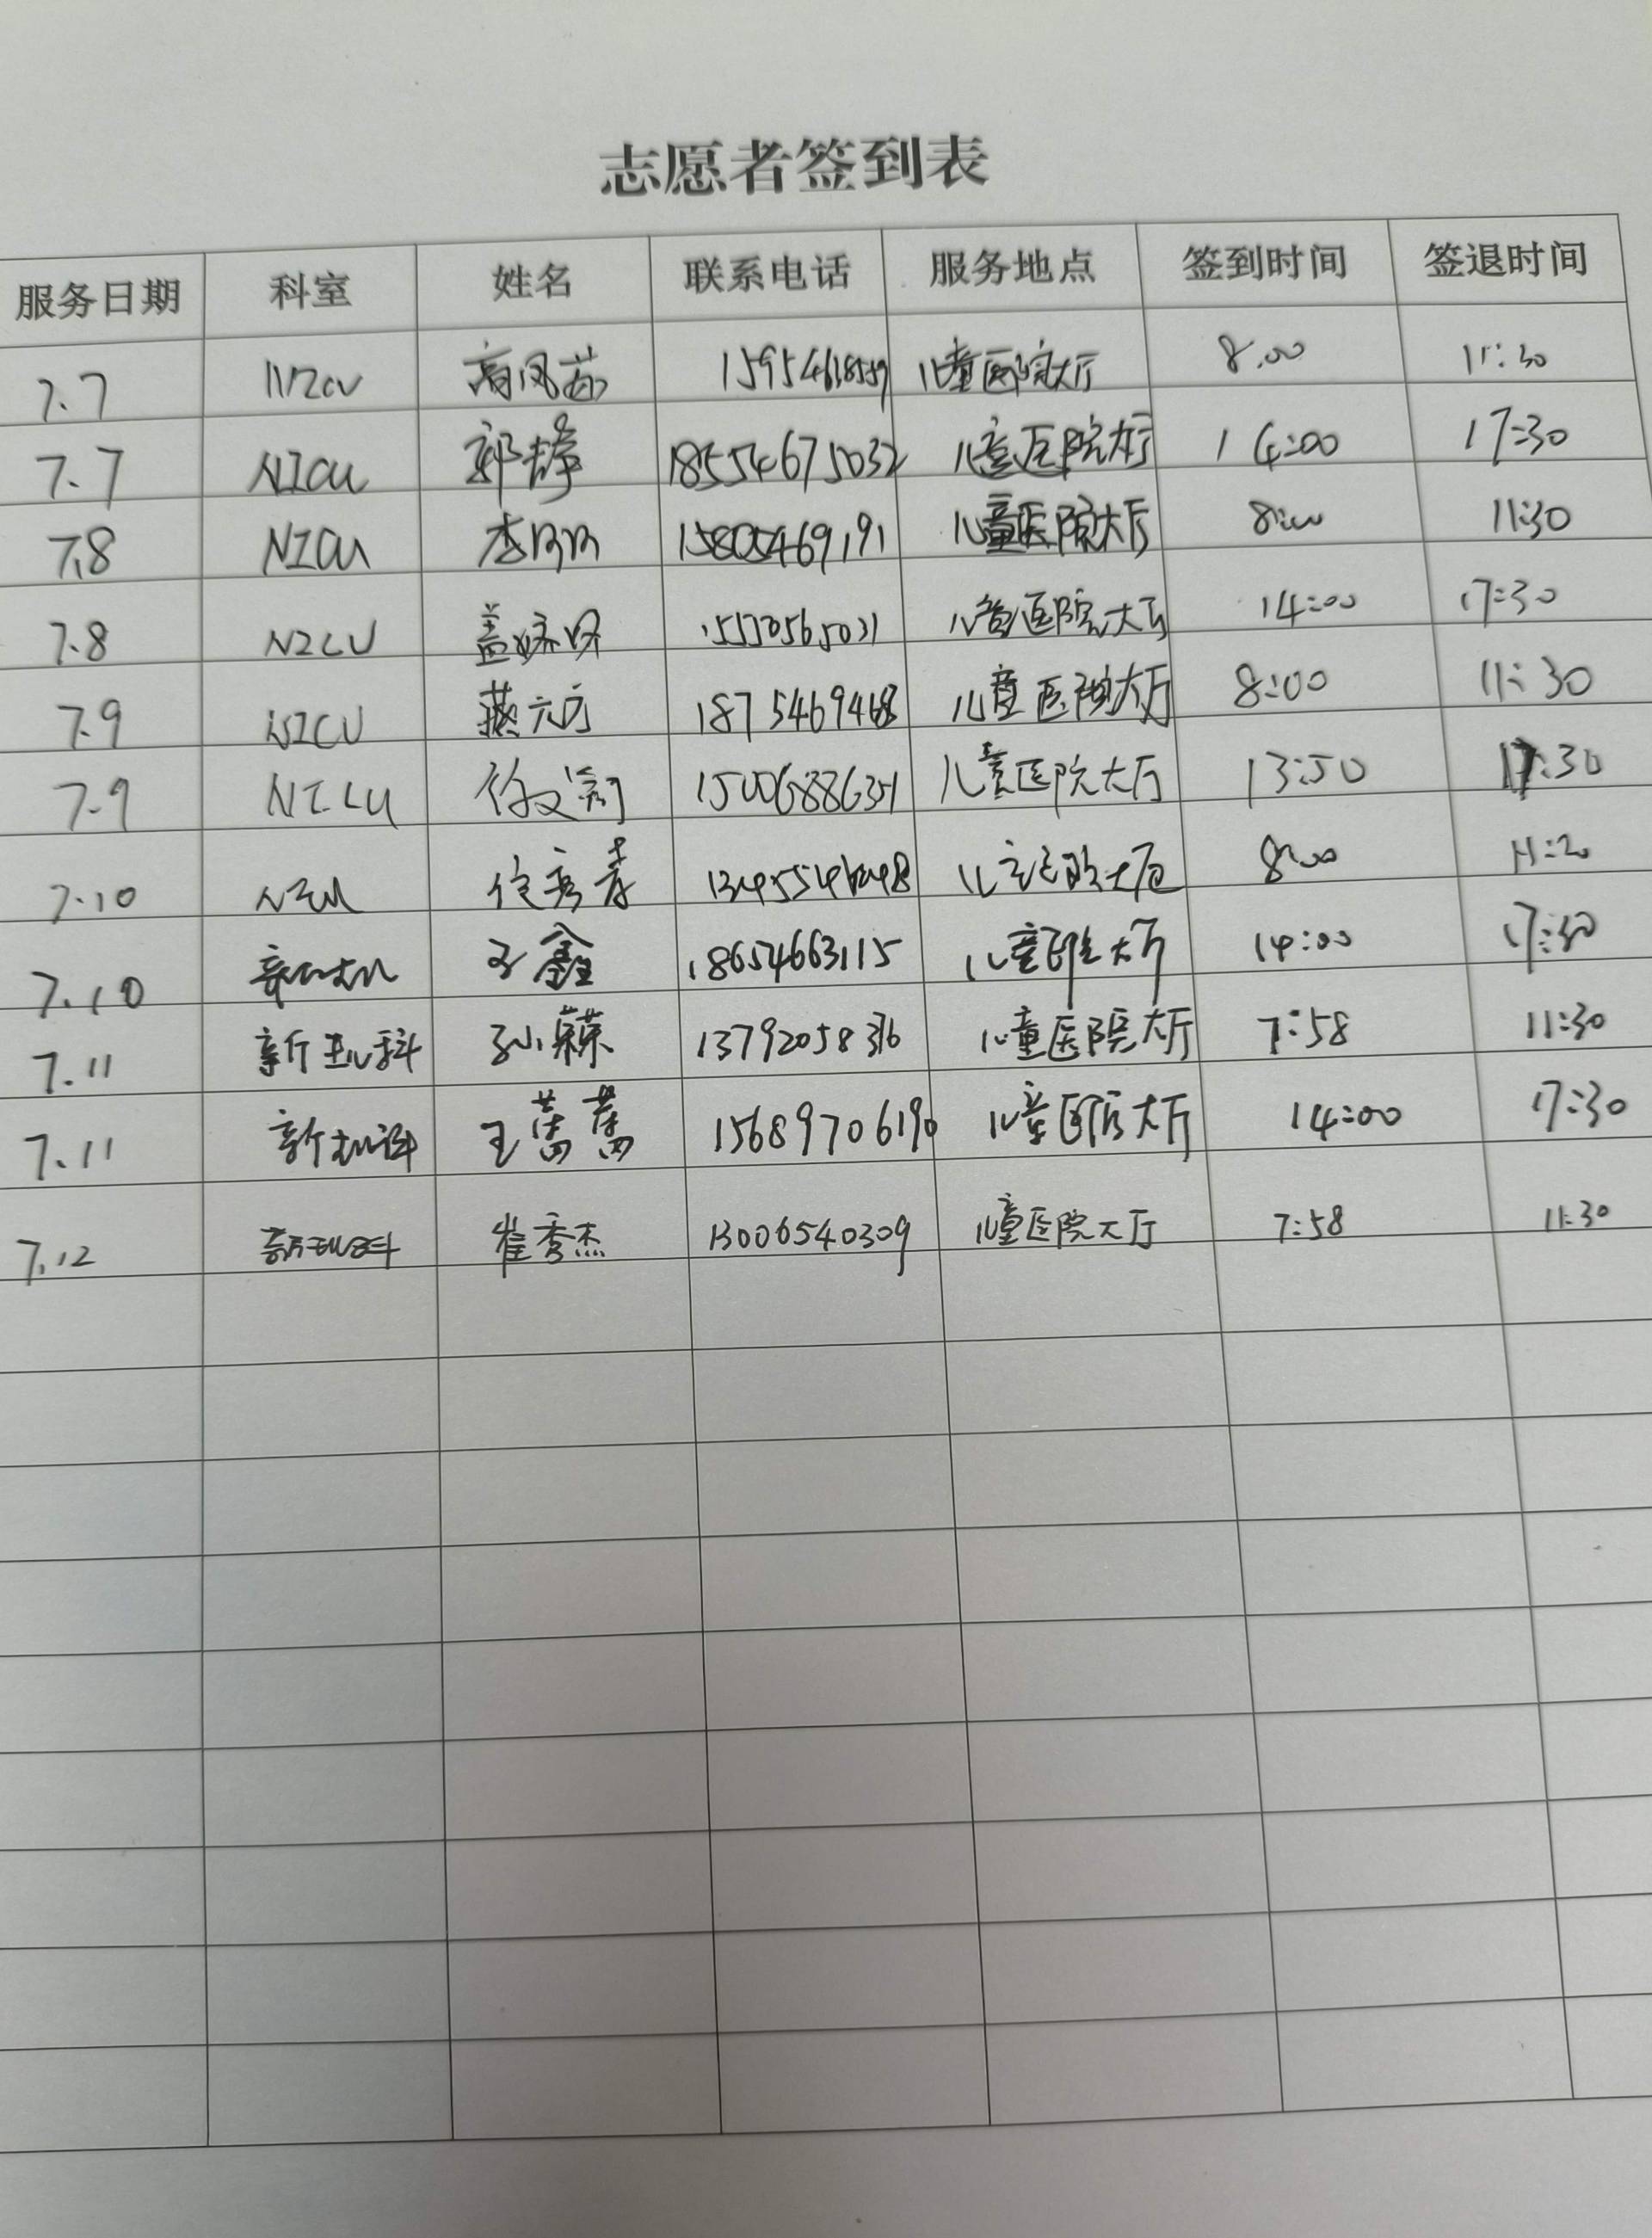 志愿者签到表
服务日期 科室 姓名 联系电话 服务地点 签到时间 签退时间
7.7 高凤茹 儿童医院大厅 8:00 11:30
7.7 NICU 郭静 18554675032 儿童医院大厅 14:00 17:30
7.8 NICU 15805469191 儿童医院大厅 8:00 11:30
7.8 NICU 儿童医院大厅 14:00 17:30
7.9 NICU 燕元方 1875469468 儿童医院大厅 8:00 11:30
7.9 NICU 儿童医院大厅 13:50 17:30
7.10 8:00
7.10 鑫 18654663115 儿童医院大厅 14:00 17:30
7.11 新生儿科 孙 儿童医院大厅 7:58 11:30
7.11 新生儿科 王 15689706190 儿童医院大厅 14:00 17:30
7.12 新生儿科 崔秀杰 13006540309 儿童医院大厅 7:58 11:30